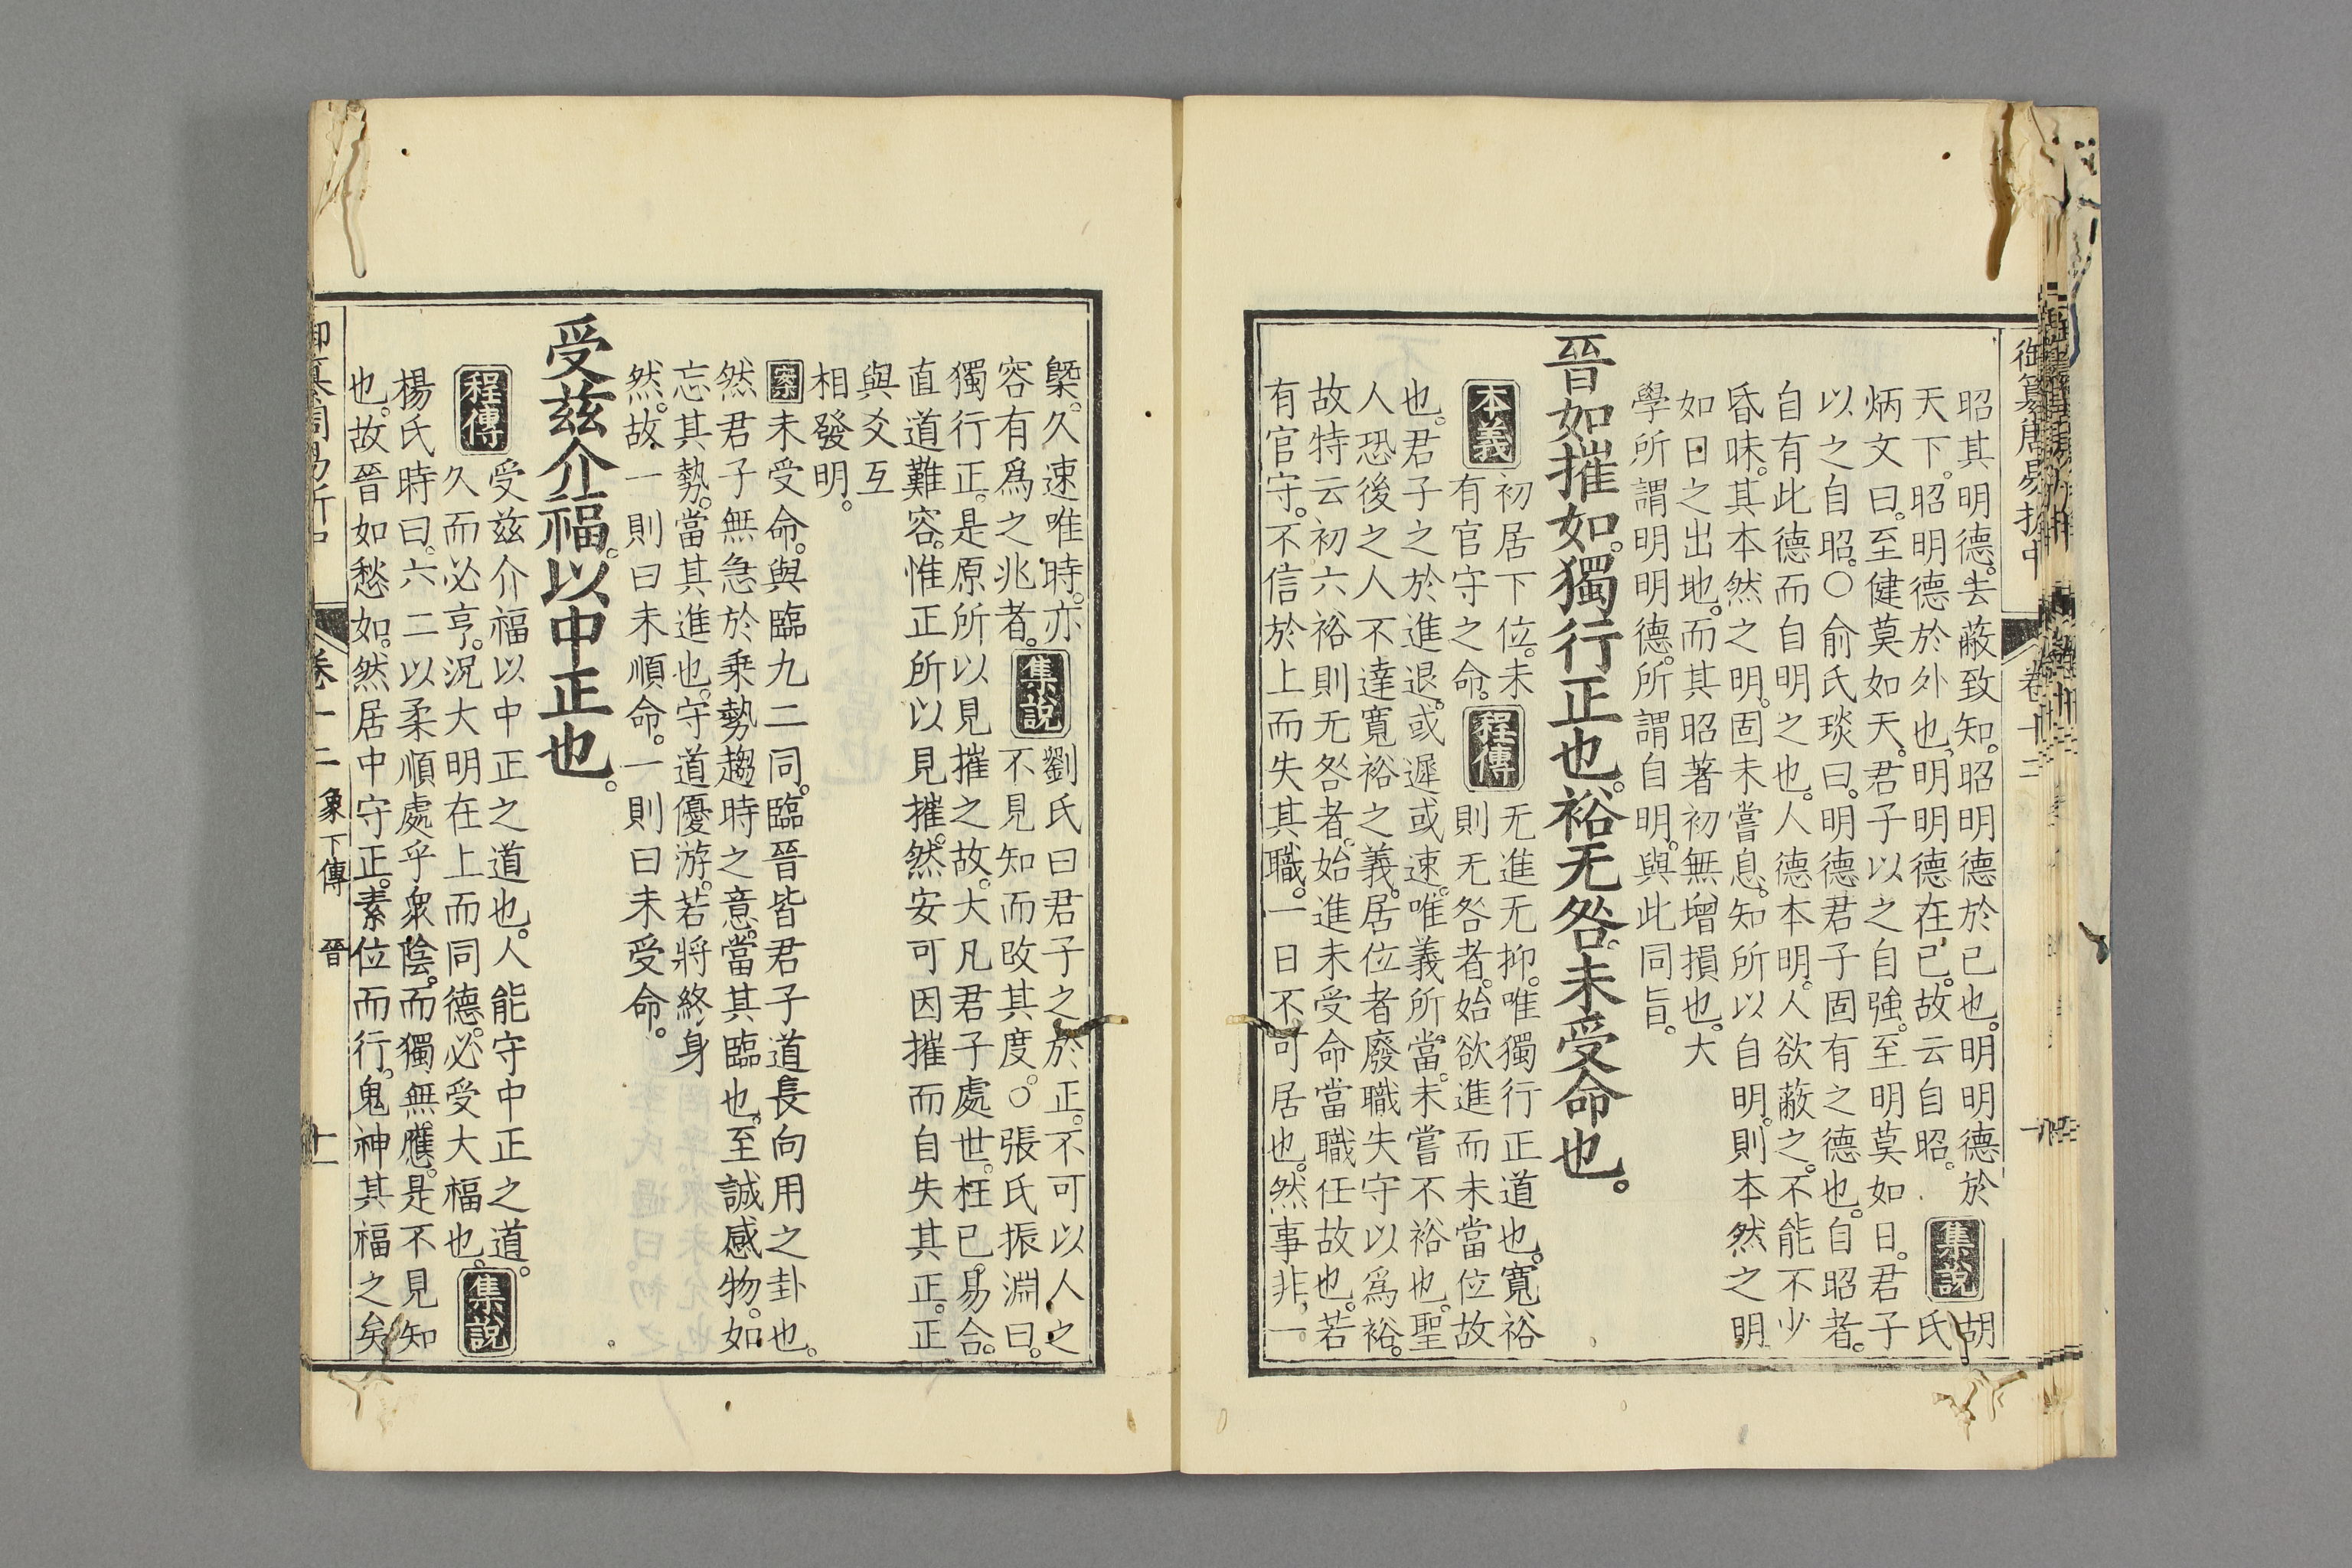 御纂周易折中
卷十二
昭其明德去蔽致知昭明德於已也明明德於
天下昭明德於外也明明德在已故云自昭 集說 胡氏
炳文曰至健莫如天君子以之自強至明莫如日君子
以之自昭○俞氏琰曰明德君子固有之德也自昭者
自有此德而自明之也人德本明人欲蔽之不能不少
昏昧其本然之明固未嘗息知所以自明則本然之明
如日之出地而其昭著初無增損也大
學所謂明明德所謂自明與此同旨
晉如摧如獨行正也裕无咎未受命也
本義 初居下位未有官守之命 程傳 无進无抑唯獨行正道也寬裕
則无咎者始欲進而未當位故
也君子之於進退或遲或速唯義所當未嘗不裕也聖
人恐後之人不達寬裕之義居位者廢職失守以爲裕
故特云初六裕則无咎者始進未受命當職任故也若
有官守不信於上而失其職一日不可居也然事非一
槩久速唯時亦
容有爲之兆者 集說 劉氏曰君子之於正不可以人之
不見知而攺其度○張氏振淵曰
獨行正是原所以見摧之故大凡君子處世枉已易合
直道難容惟正所以見摧然安可因摧而自失其正正
與爻互
相發明
案未受命與臨九二同臨晉皆君子道長向用之卦也
然君子無急於乗勢趨時之意當其臨也至誠感物如
忘其勢當其進也守道優游若將終身
然故一則曰未順命一則曰未受命
受茲介福以中正也
程傳 受茲介福以中正之道也人能守中正之道
久而必亨況大明在上而同德必受大福也 集說
楊氏時曰六二以柔順處乎衆陰而獨無應是不見知
也故晉如愁如然居中守正素位而行鬼神其福之矣
卷十二 象下傳 晉 十一